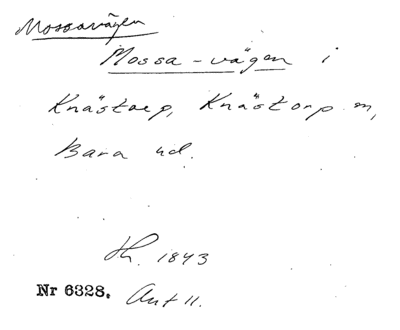 Mossavägen
Mossa-vägen i
Knästorp, Knästorp sn,
Bara hd.
Th. 1843
Nr 6328. Ant 11.